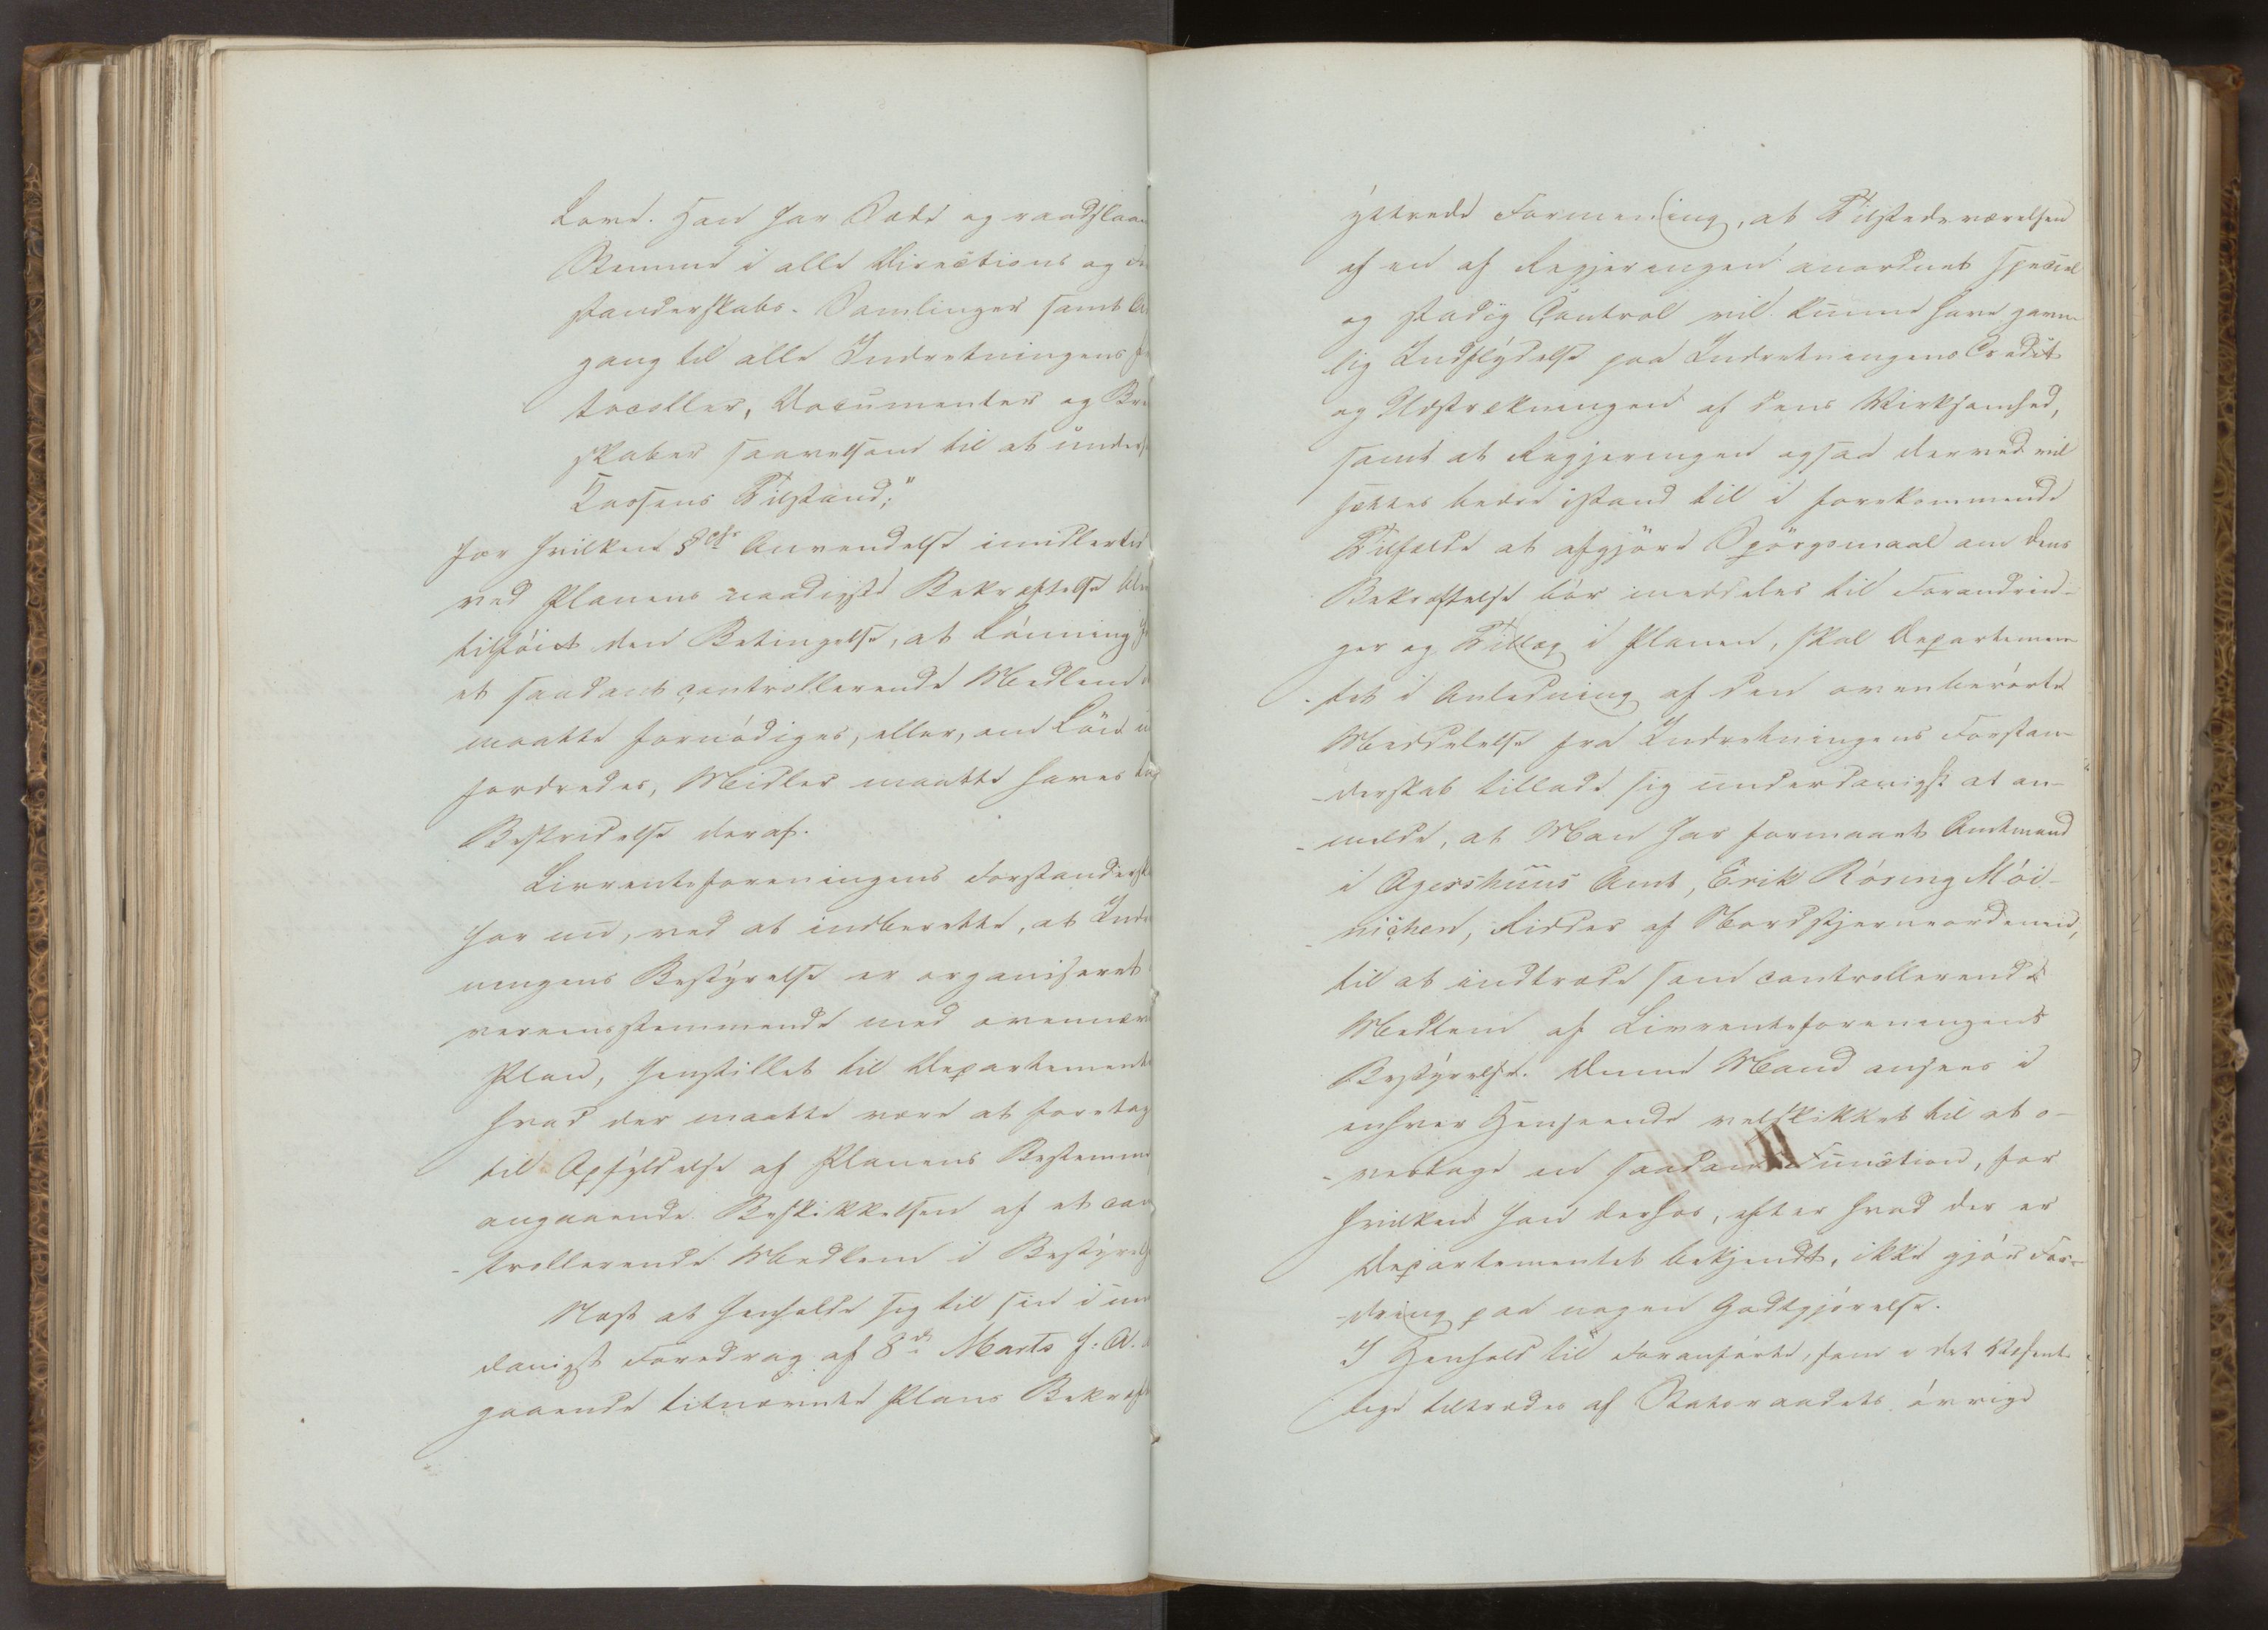 Love. Han har Sæde og raadslaaen
Stemme i alle Directions og For
standerskabs-Samlinger samt Ad
gang til alle Indretningens Pro
tocoller, Documenter og Bru
skaber saavelsom til at unders
Cassens Tilstand;"
for hvilken §phs Anvendelse imidlertid
ved Planens naadigste Bekræftelse blev
tilföiet den Betingelse, at Lönning
et saadant controllerende Medlem
maatte fornödiges, eller, om Lön
fordredes, Midler maatte haves
Bestridelse deraf.
Livrenteforeningens Forstandersk
har nu, ved at indberette, at Indr
ningens Bestyrelse er organiseret
vereensstemmende med ovennævn
Plan, henstillet til Departemente
hvad der maatte være at foretag
til Opfyldelse af Planens Bestemm
angaaende Beskikkelsen af et con
trollerende Medlem i Bestyrels
Næst at henholde sig til sin i un
danigst Foredrag af 8de Marts f: A.
gaaende bitnævnte Plans Bekræft
yttrede Formening, at Tilstedeværelsen
af en af Regjeringen anordnet speciel
og stadig Control vil kunne have gavn-
lig Indflydelse paa Indretningens Credit
og Udstrækningen af dens Virksomhed,
samt at Regjeringen ogsaa derved vil
sættes bedre istand til i forekommende
Tilfælde at afgjöre Spörgsmaal om dens
Bekræftelse bör meddeles til Forandrin-
ger og Tillæg i Planen, skal Departemen-
-tet i Anledning af den ovenberörte
Meddelelse fra Indretningens Forstan-
-derskab tillade sig underdanigst at an-
-melde, at Man har formaaet Amtmand
i Agershuus Amt, Erik Röring Möi-
-nichen, Ridder af Nordstjerneordenen,
til at indtræde som controllerende
Medlem af Livrenteforeningens
Bestyrelse. Denne Mand ansees i
enhver Henseende velskikket til at o-
-vertage en saadan Function, for
hvilken han derhos, efter hvad der er
Departementet bekjendt, ikke gjör For-
-dring paa nogen Godtgjörelse.
I Henhold til Foranförte, som i det Væsent-
lige tiltrædes af Statsraadets övrige